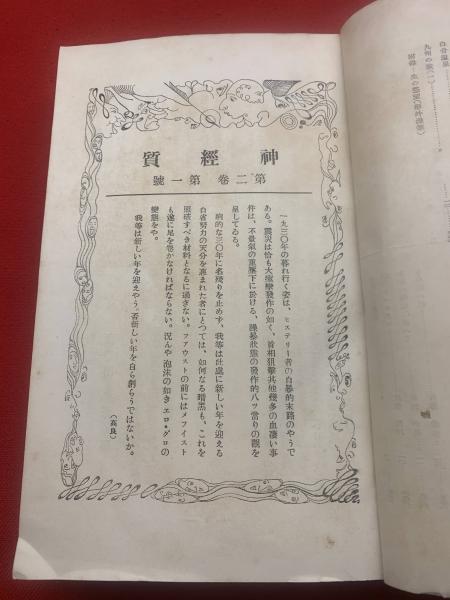 神經質
第二卷 第一號
一九三〇年の暮れ行く姿は、ヒステリー者の自暴的末路のやうで
ある。震災は恰も大痙攣發作の如く、首相狙擊其他幾多の血凄い事
件は、不景氣の重壓下に於ける、躁暴狀態の發作的八ッ當りの觀を
呈してゐる。
病的な三〇年に名殘りを止めず、我等は此處に新しい年を迎える
自省努力の天分を惠まれた者にとつては、如何なる暗黑も、これを
照破すべき材料となるに過ぎない。フアウストの前にはメフイスト
も遂に尾を卷かなければならない。況んや泡沫の如きエロ・グロの
變態をや。
我等は新しい年を迎えやう、否新しい年を自ら創らうではないか。
(高良)
九州の旅(一)